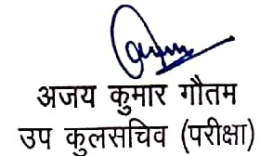 अजय कुमार गौतम
उप कुलसचिव (परीक्षा)